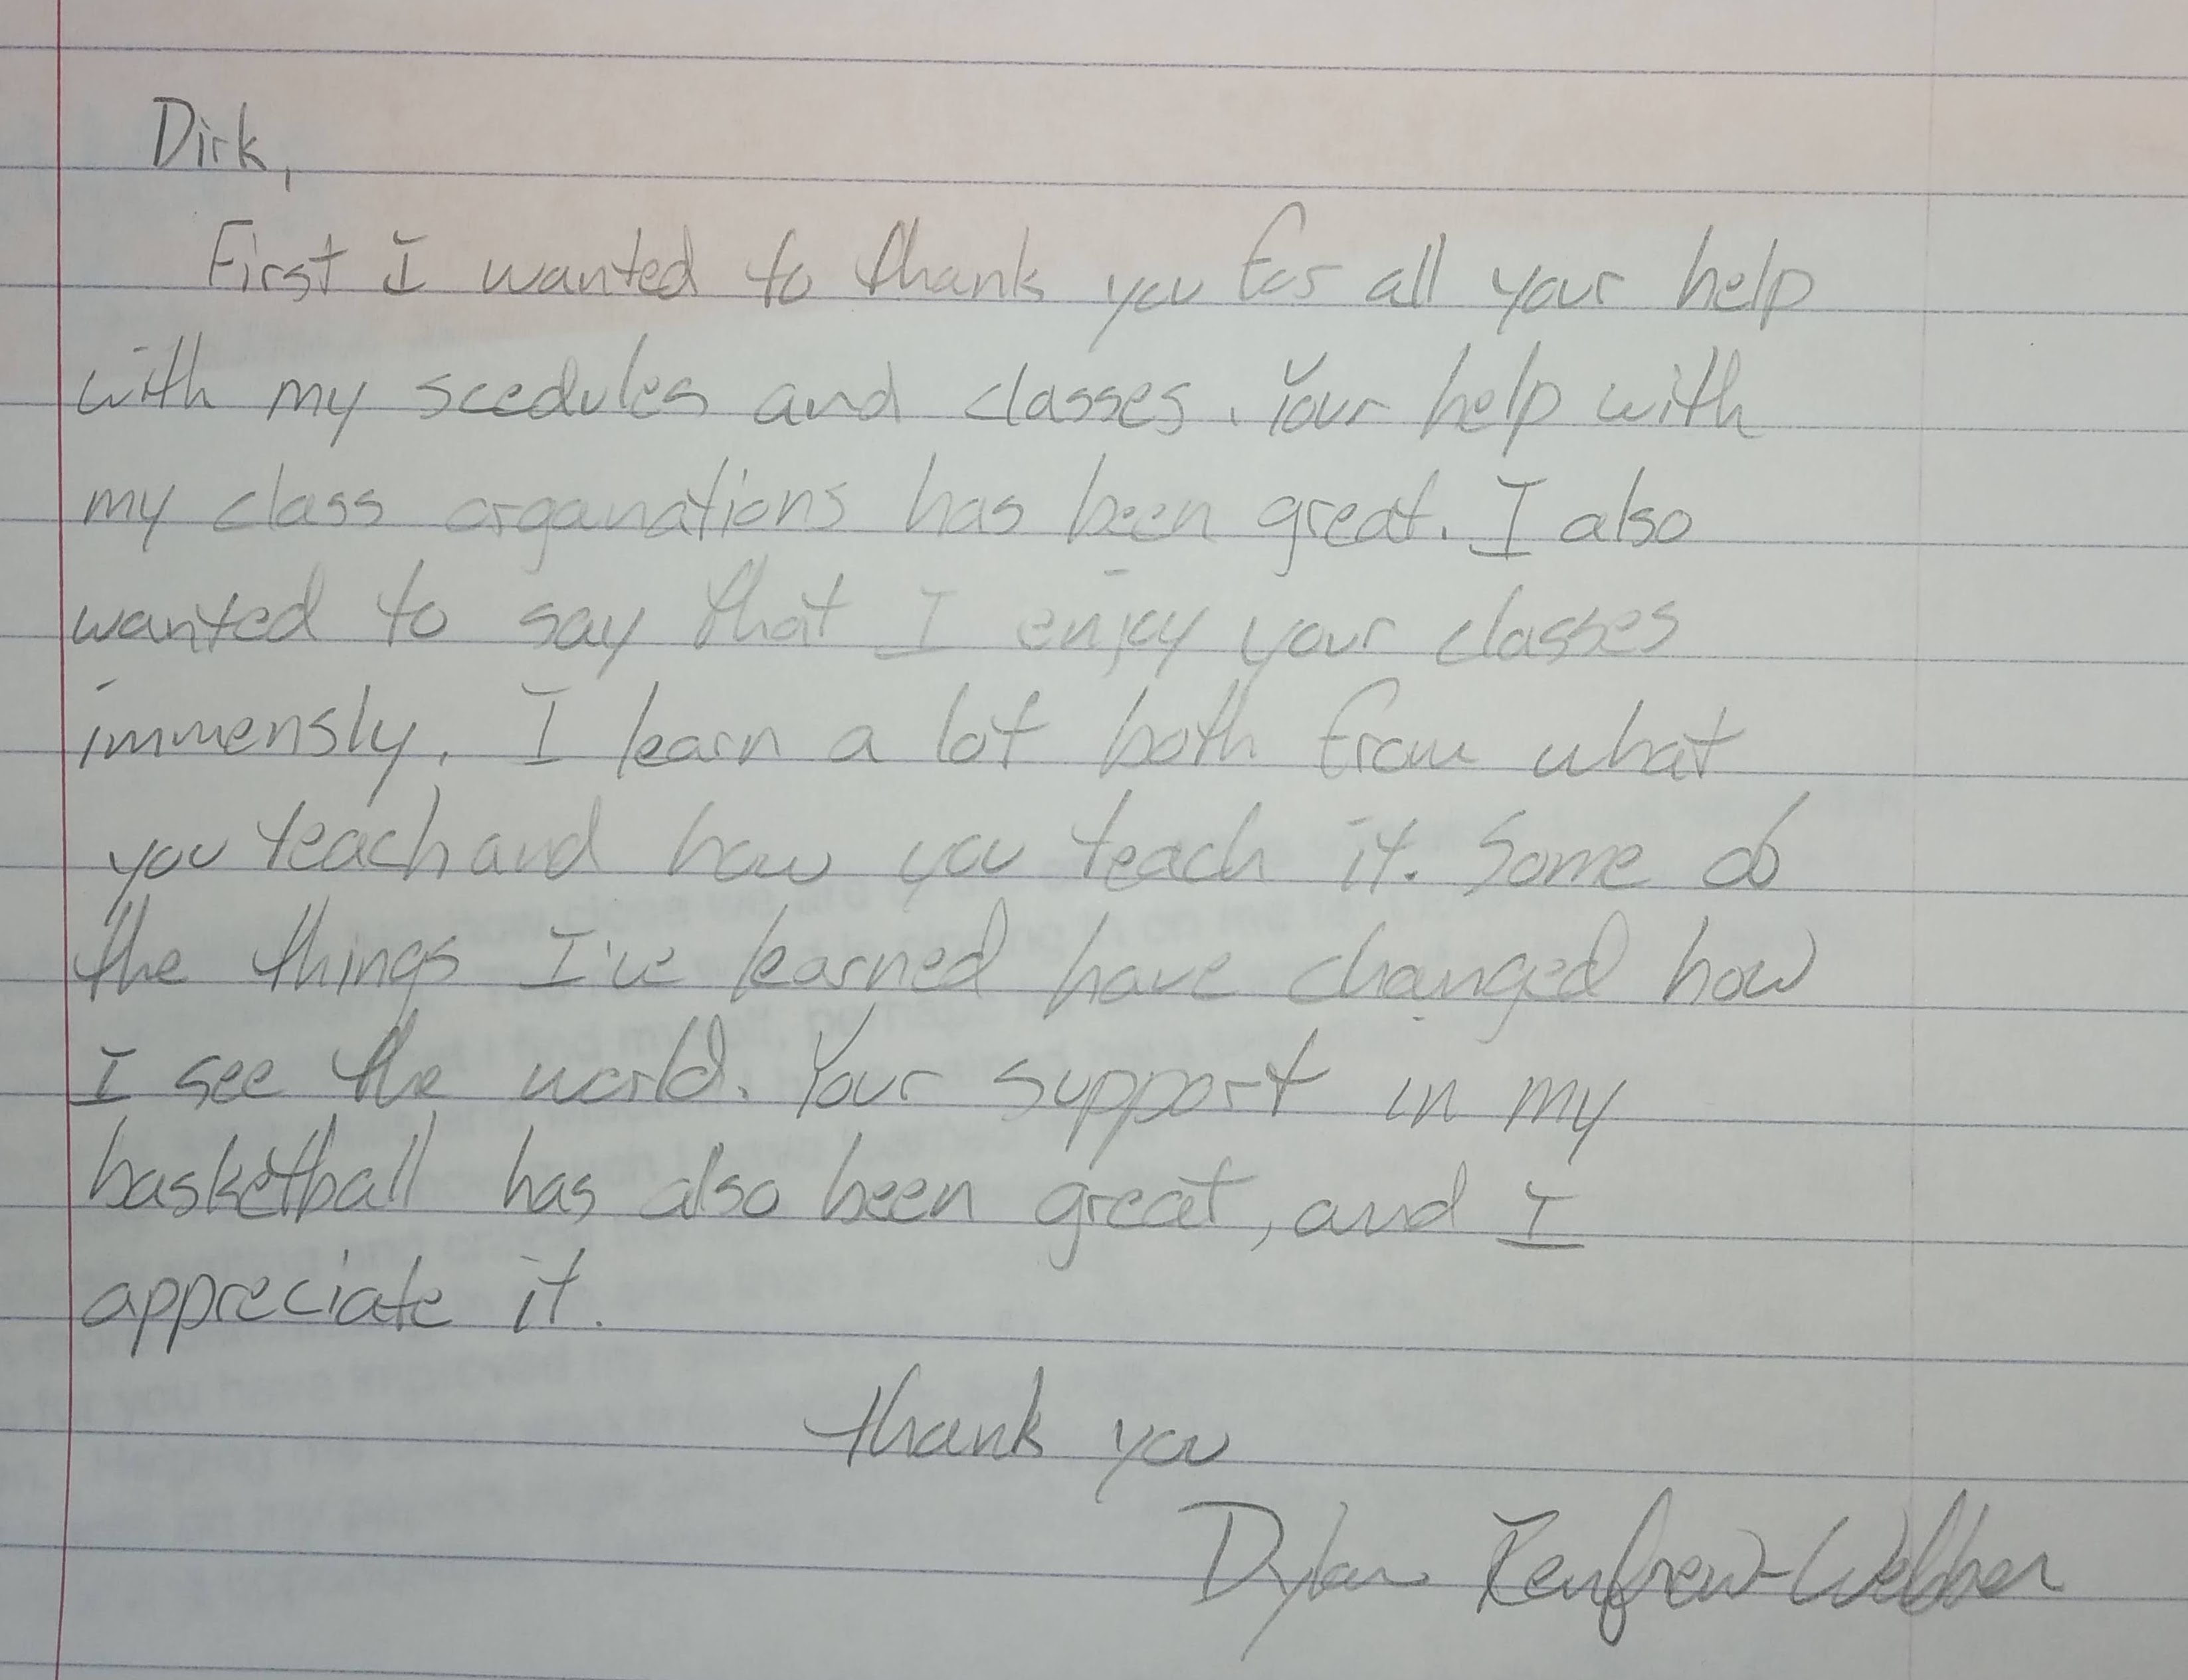 Dirk,
First I wanted to thank you for all your help
with my scedules and classes. Your help with
my class organations has been great. I also
wanted to say that I enjoy your classes
immensly. I learn a lot both from what
you teach and how you teach it. Some of
the things I've learned have changed how
I see the world. Your support in my
basketball has also been great, and I
appreciate it.
thank you
Dylan Renfrew-Webber